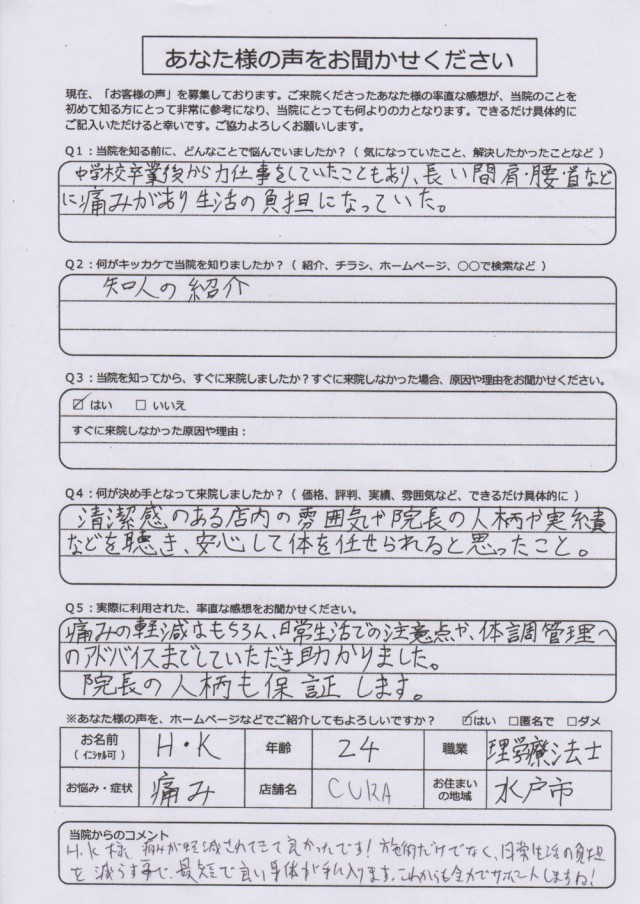 あなた様の声をお聞かせください
現在、「お客様の声」を募集しております。ご来院くださったあなた様の率直な感想が、当院のことを
初めて知る方にとって非常に参考になり、当院にとっても何よりの力となります。できるだけ具体的に
ご記入いただけると幸いです。ご協力よろしくお願いします。
Q1：当院を知る前に、どんなことで悩んでいましたか？（ 気になっていたこと、解決したかったことなど ）
中学校卒業後から力仕事をしていたこともあり、長い間肩・腰・首など
に痛みがあり生活の負担になっていた。
Q2：何がキッカケで当院を知りましたか？（ 紹介、チラシ、ホームページ、○○で検索など ）
知人の紹介
Q3：当院を知ってから、すぐに来院しましたか？すぐに来院しなかった場合、原因や理由をお聞かせください。
☑ はい □ いいえ
すぐに来院しなかった原因や理由：
Q4：何が決め手となって来院しましたか？（ 価格、評判、実績、雰囲気など、できるだけ具体的に ）
清潔感のある店内の雰囲気や院長の人柄や実績
などを聴き、安心して体を任せられると思ったこと。
Q5：実際に利用された、率直な感想をお聞かせください。
痛みの軽減はもちろん、日常生活での注意点や、体調管理へ
のアドバイスまでしていただき助かりました。
院長の人柄も保証します。
※あなた様の声を、ホームページなどでご紹介してもよろしいですか？ ☑はい □匿名で □ダメ
お名前（イニシャル可） H・K 年齢 24 職業 理学療法士
お悩み・症状 痛み 店舗名 CURA お住まいの地域 水戸市
当院からのコメント
H.K様 痛みが軽減されてきて良かったです！施術だけでなく、日常生活の負担
を減らす事で、最短で良い身体が手に入ります。これからも全力でサポートしますね！